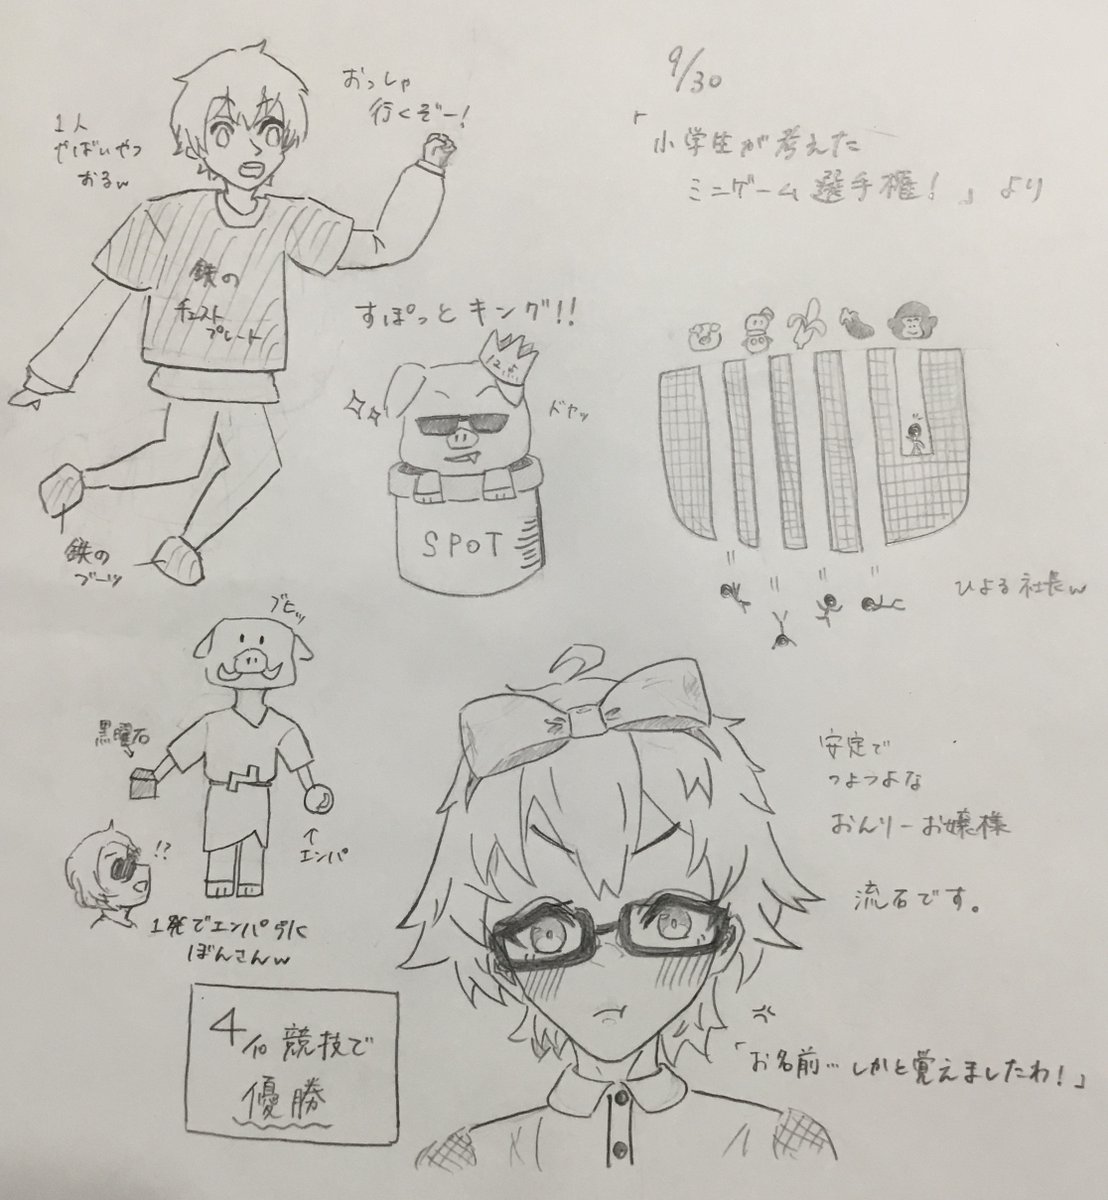 9/30
「小学生が考えた
ミニゲーム選手権！」より
おっしゃ
行くぞー！
1人
やばいやつ
おるw
鉄の
チェスト
プレート
鉄の
ブーツ
すぽっとキング!!
12点
ドヤッ
SPOT
ひよる社長w
ブヒッ
黒曜石
エンパ
!?
1発でエンパ引く
ぼんさんw
安定で
つよつよな
おんりーお嬢様
流石です。
4/10競技で
優勝
「お名前…しかと覚えましたわ！」